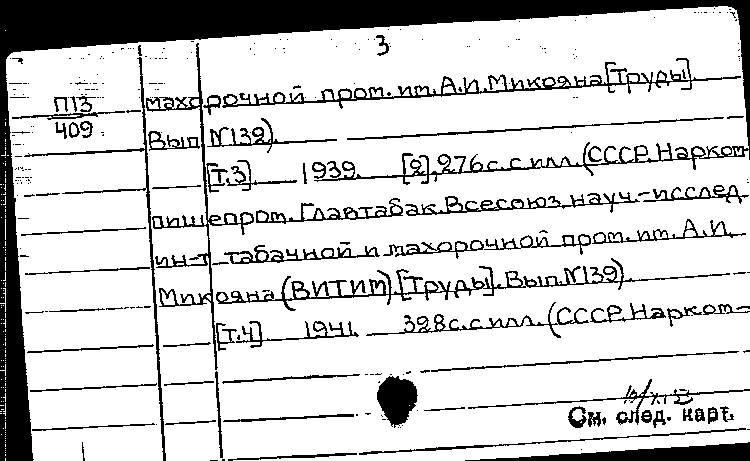 3
П13
409
махорочной пром. им. А.И. Микояна [Труды].
Вып. N 132).
[т.3] 1939. [2], 276 с. с илл. (СССР. Нарком-
пищепром. Главтабак. Всесоюз. науч.-исслед.
ин-т табачной и махорочной пром. им. А.И.
Микояна (ВИТИМ) [Труды]. Вып. N 139).
[т.4] 1941. 328 с. с илл. (СССР. Нарком-
См. след. карт.